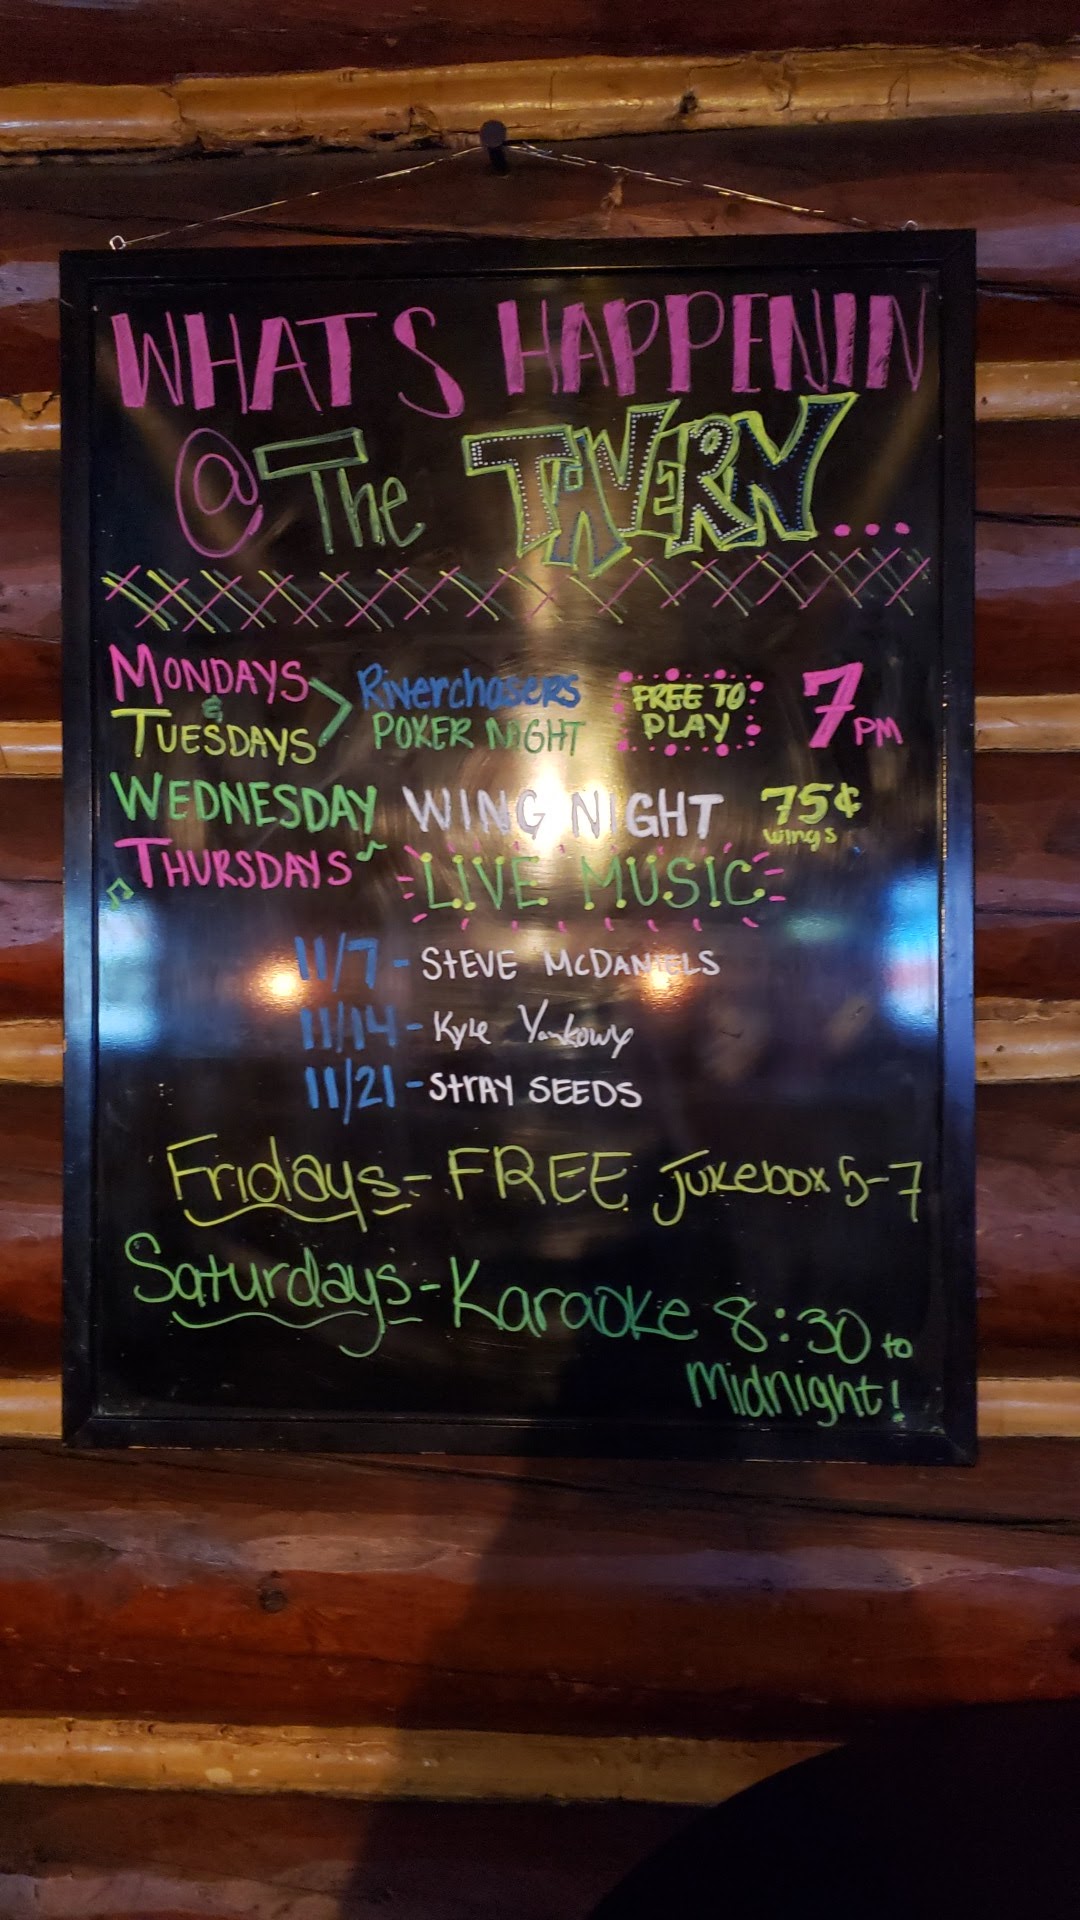 WHATS HAPPENIN
@ The TAVERN...
MONDAYS
&
TUESDAYS
>
Riverchasers
POKER NIGHT
FREE TO
PLAY
7 PM
WEDNESDAY WING NIGHT 75¢
wings
THURSDAYS LIVE MUSIC
11/7 - STEVE MCDANIELS
11/14 - Kyle Yankowy
11/21 - STRAY SEEDS
Fridays - FREE Jukebox 5-7
Saturdays - Karaoke 8:30 to
Midnight!